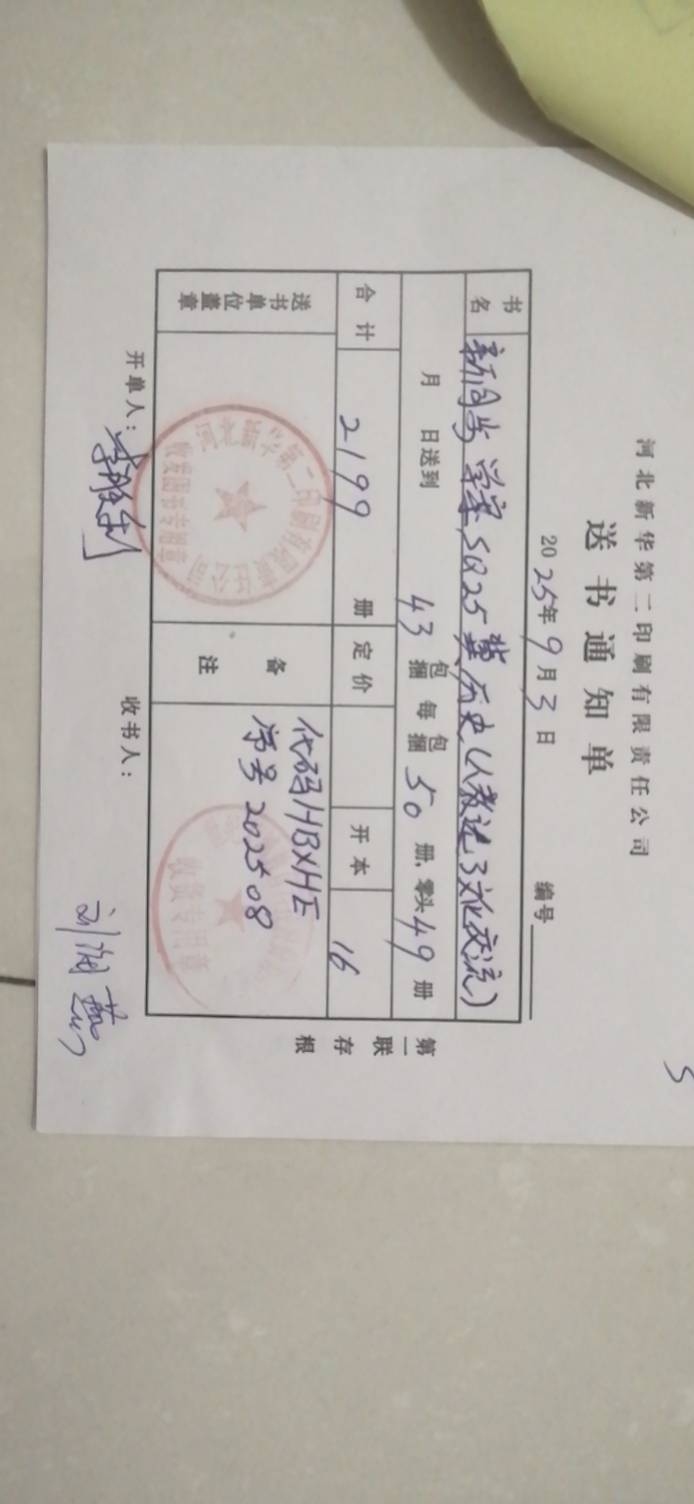 河北新华第二印刷有限责任公司
送书通知单
2025年9月3日 编号
书名 新同步 学案 SQ25 冀 历史(人教选3文化交流)
月 日送到 43 包捆 每包捆 50 册、零头 49 册
合计 2199 册 定价 开本 16
送书单位盖章 备注 代码HBXHE
序号202508
河北新华第二印刷有限责任公司
收发图书专用章
专用章
开单人: 收书人:
第一联存根